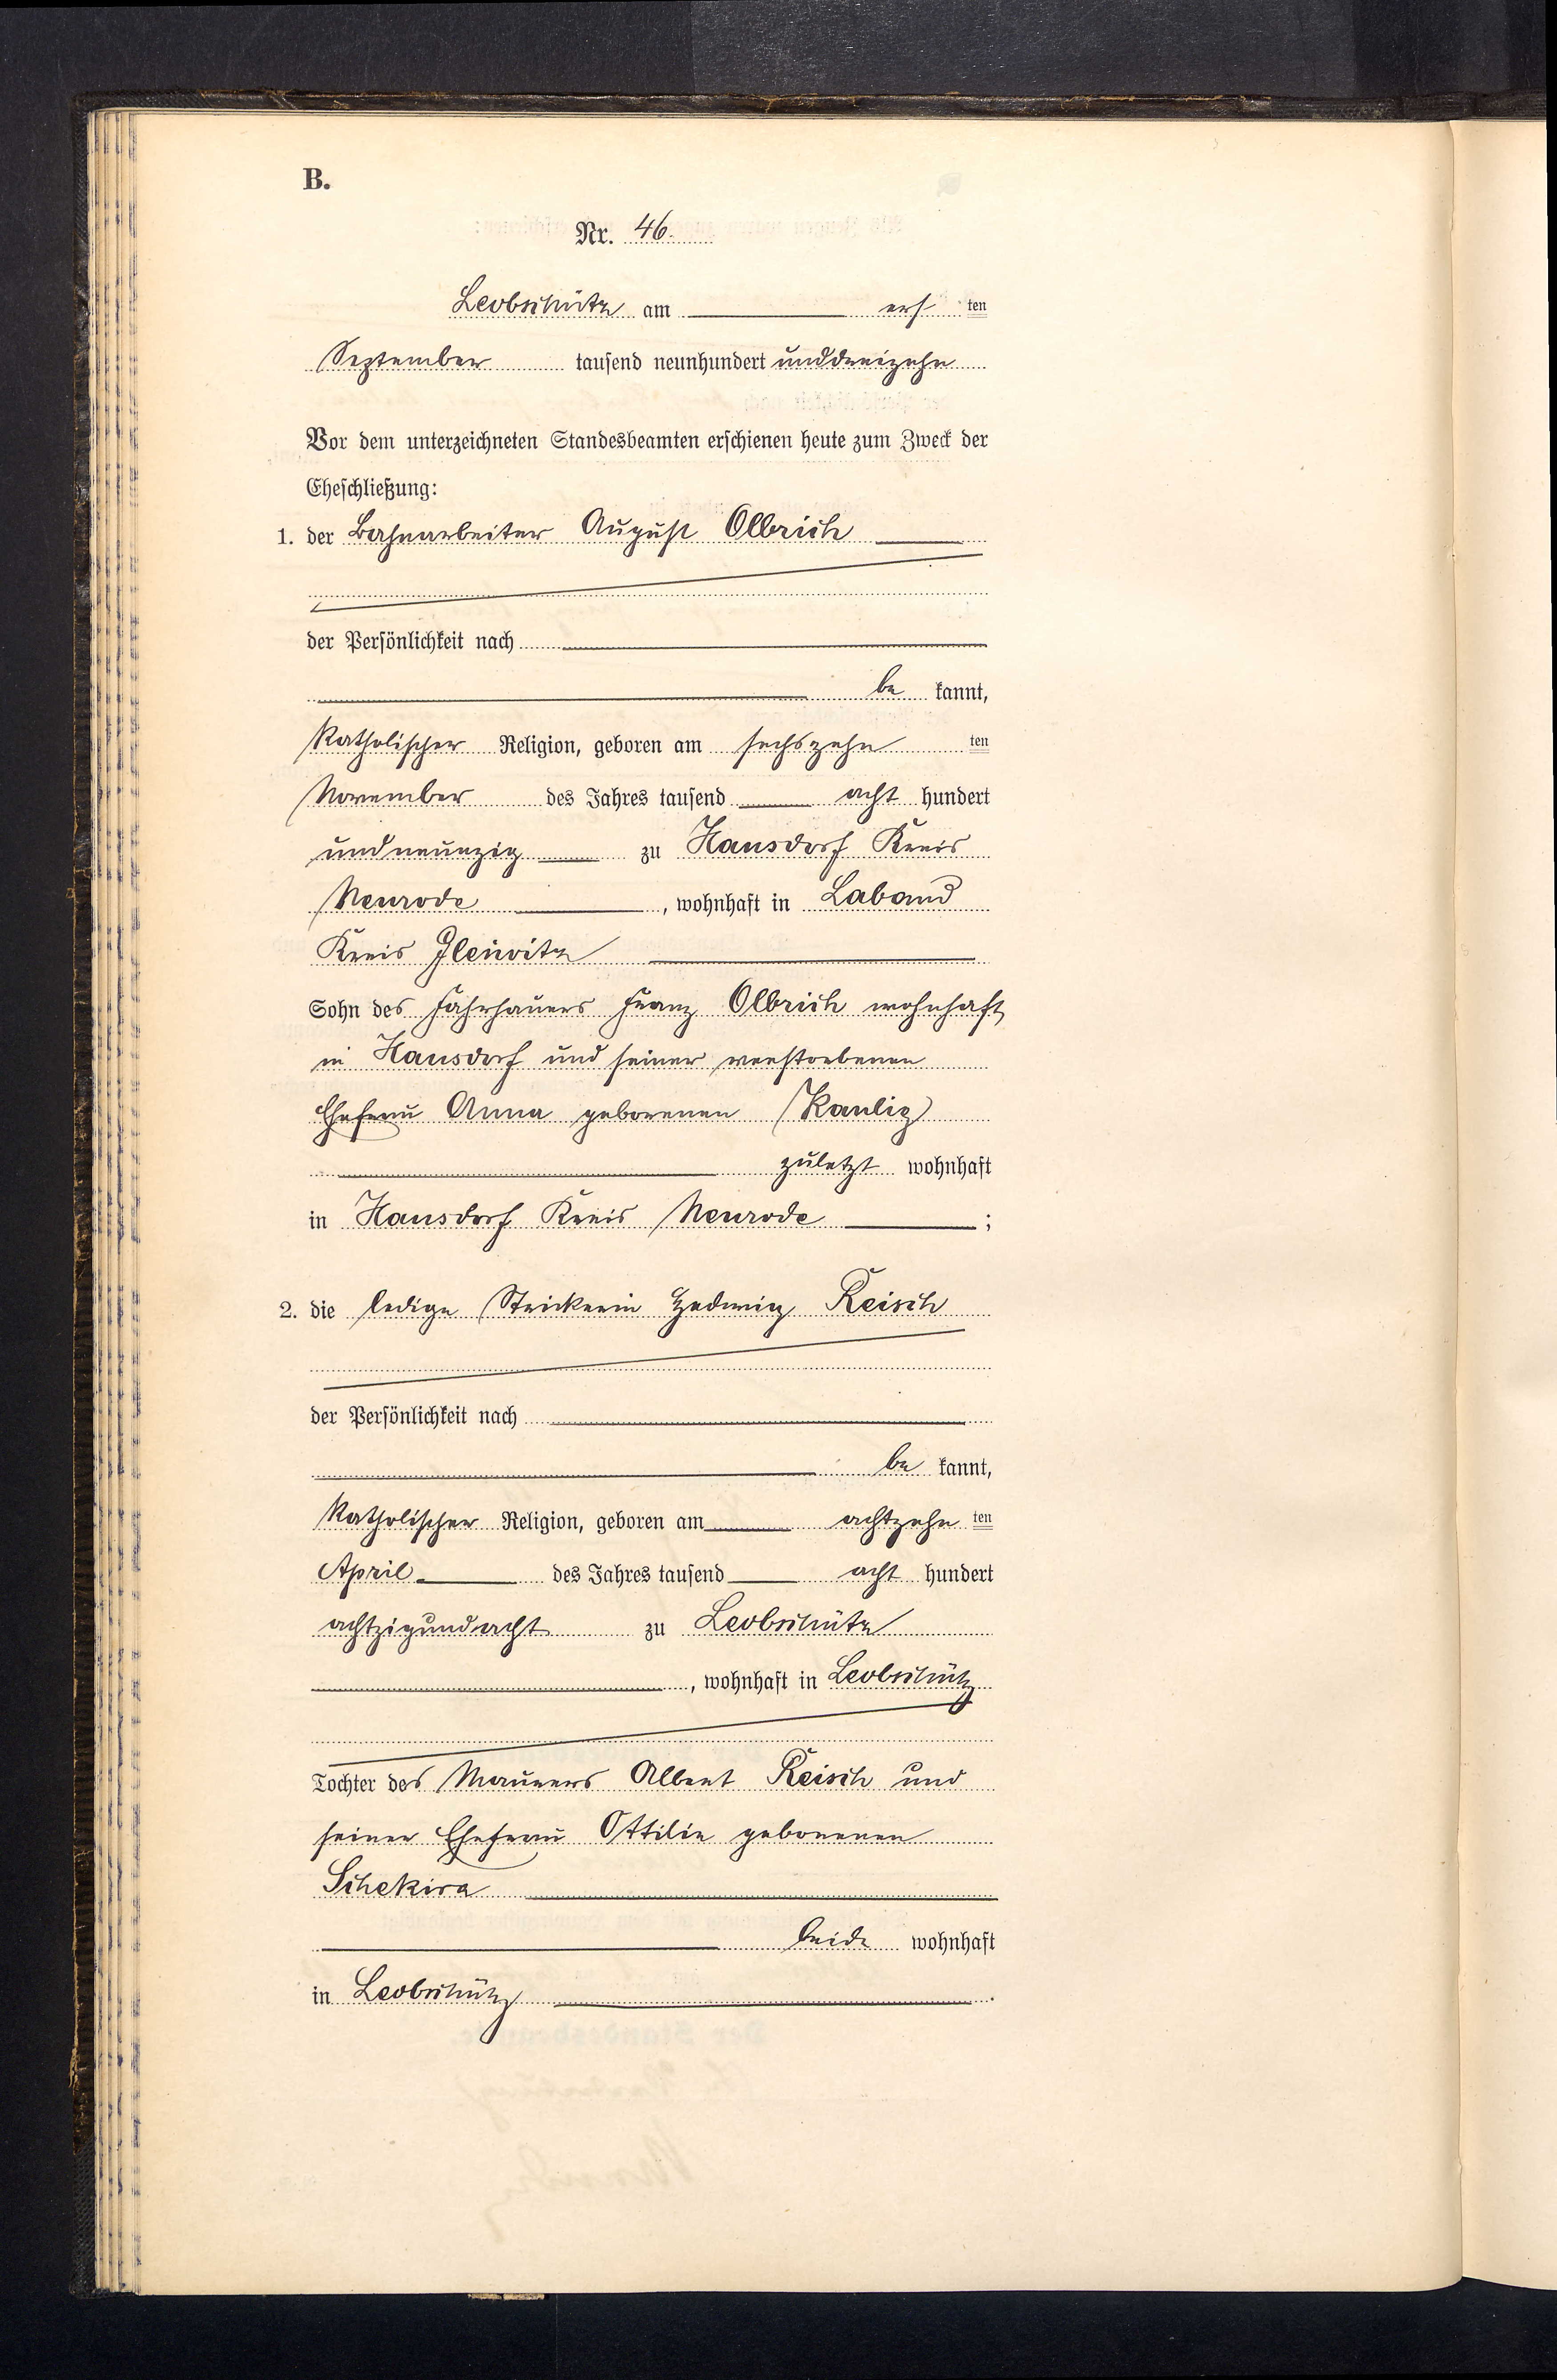 B.
Nr. 46.
Leobschütz am ersten
September tausend neunhundert unddreizehn
Vor dem unterzeichneten Standesbeamten erschienen heute zum Zweck der
Eheschließung:
1. der Bahnarbeiter August Olbrich
der Persönlichkeit nach
be kannt,
katholischer Religion, geboren am sechszehn ten
November des Jahres tausend acht hundert
undneunzig zu Hausdorf Kreis
Neurode, wohnhaft in Laband
Kreis Gleiwitz
Sohn des Fahrhauers Franz Olbrich wohnhaft
in Hausdorf und seiner verstorbenen
Ehefrau Anna geborenen Kaulig
zuletzt wohnhaft
in Hausdorf Kreis Neurode;
2. die ledige Strickerin Hedwig Reisch
der Persönlichkeit nach
be kannt,
katholischer Religion, geboren am achtzehn ten
April des Jahres tausend acht hundert
achtzigundacht zu Leobschütz
, wohnhaft in Leobschütz
Tochter des Maurers Albert Reisch und
seiner Ehefrau Ottilie geborenen
Schekira
beide wohnhaft
in Leobschütz.